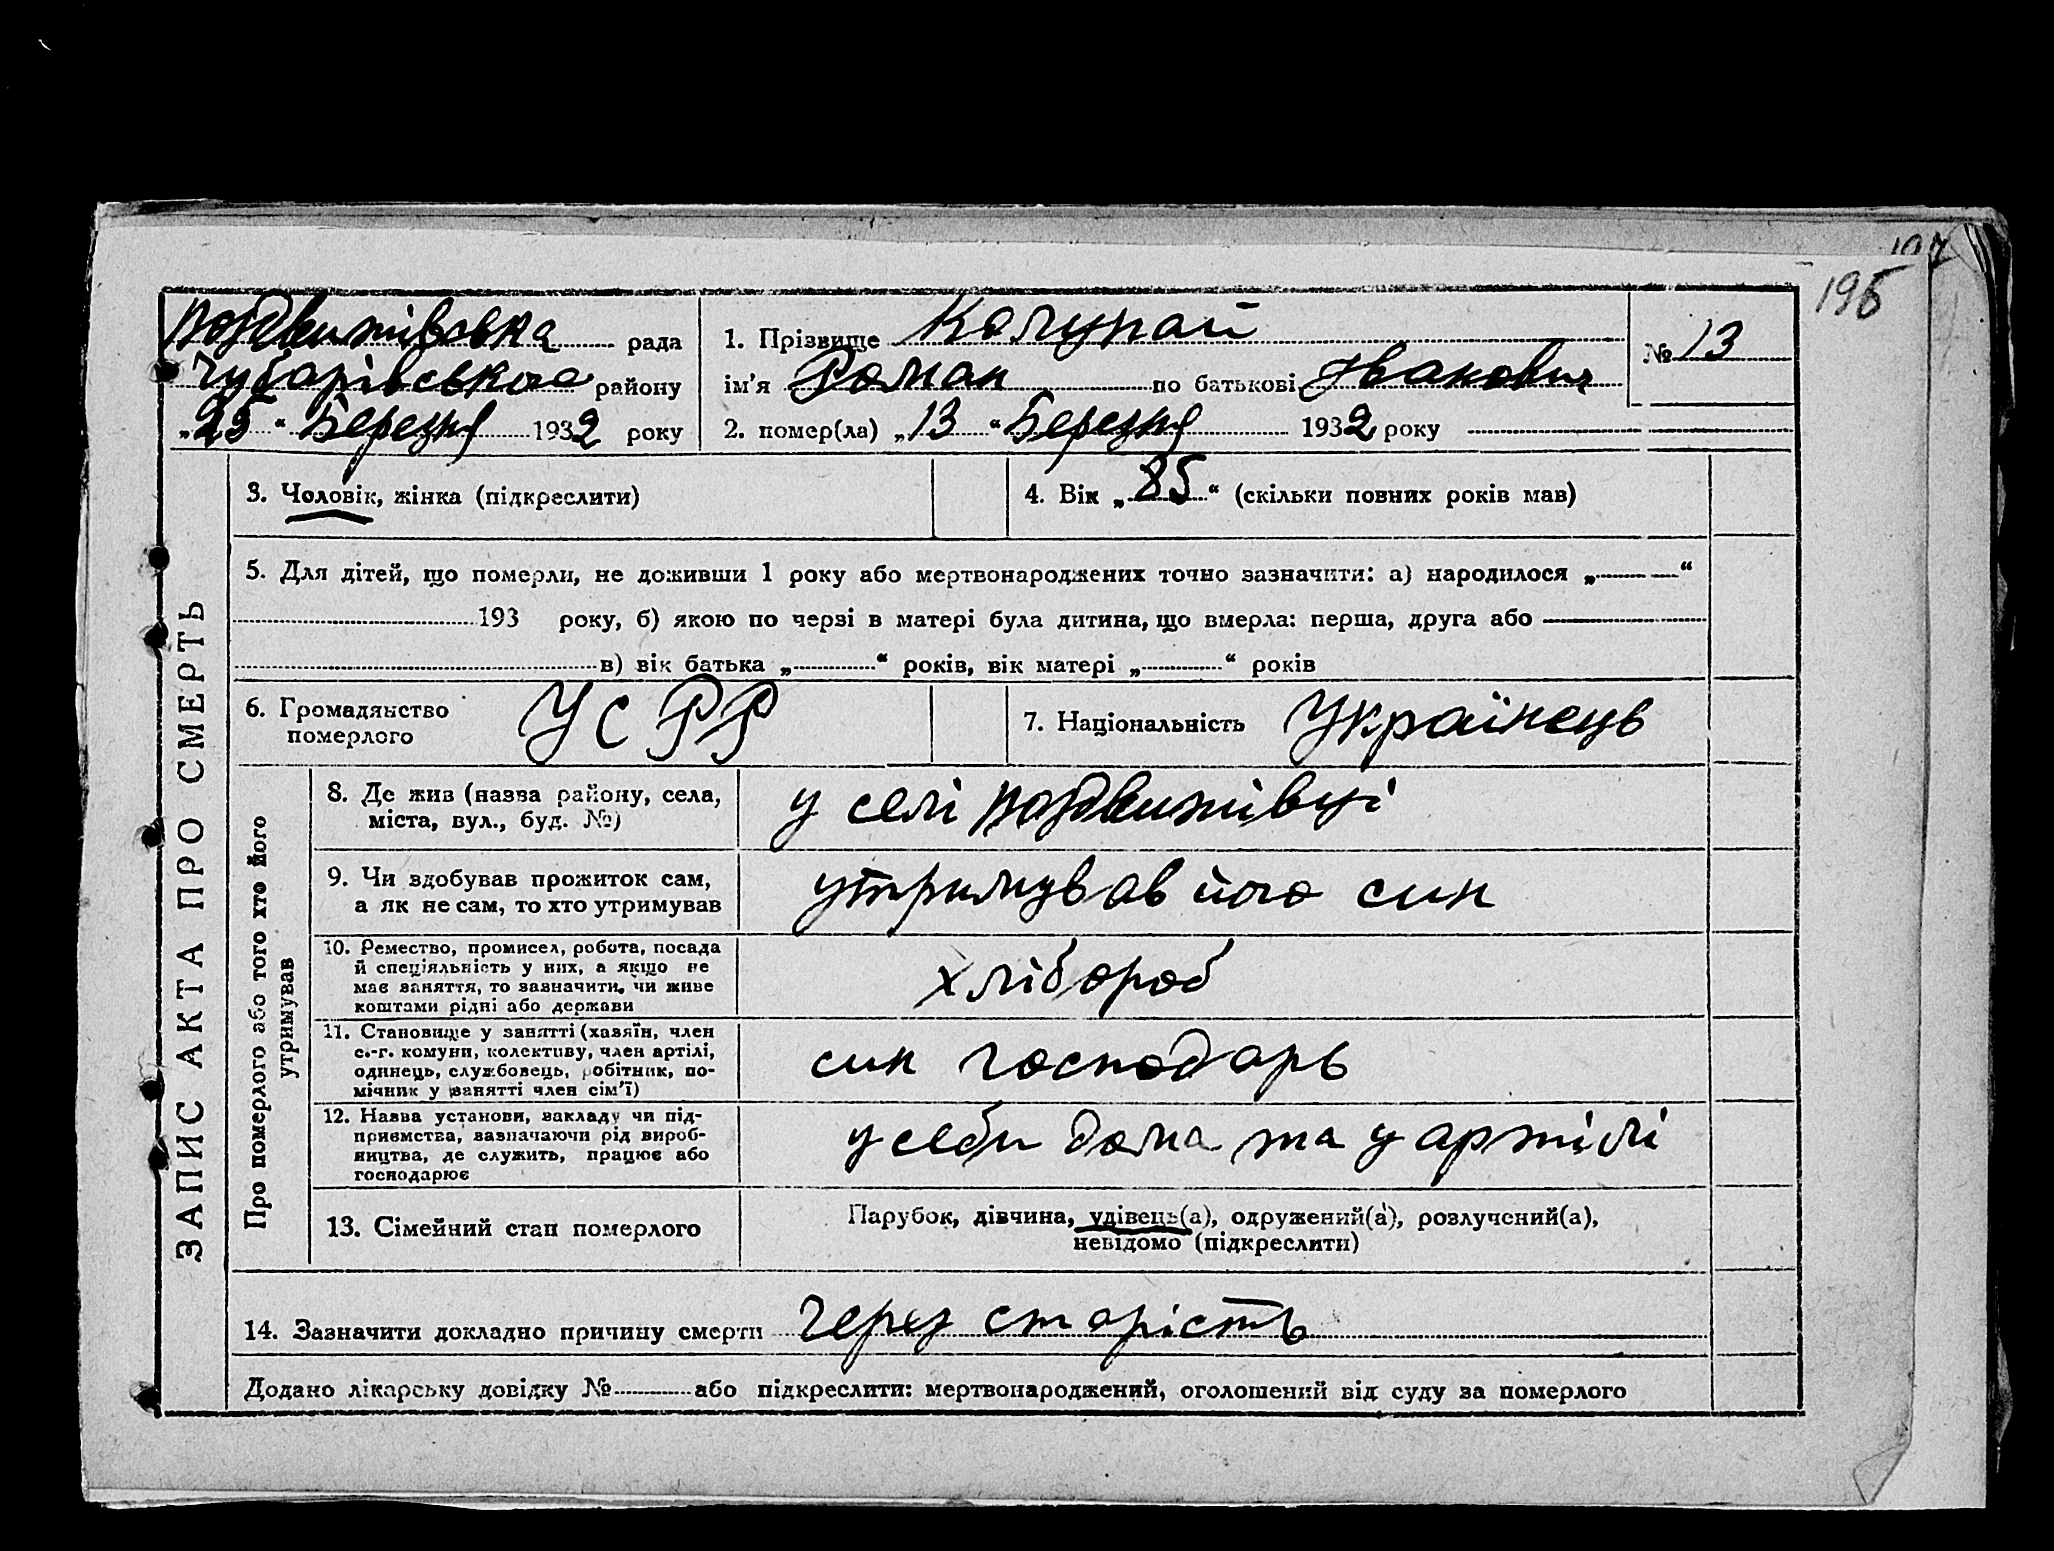 195
Воздвижівська рада
Чубарівського району
„25“ Березня 1932 року
1. Прізвище Калупай
ім'я Роман по батькові Іванович
2. помер(ла) „13“ Березня 1932 року
№ 13
ЗАПИС АКТА ПРО СМЕРТЬ
3. Чоловік, жінка (підкреслити)
4. Вік „85“ (скільки повних років мав)
5. Для дітей, що померли, не доживши 1 року або мертвонароджених точно зазначити: а) народилося „ “
193 року, б) якою по черзі в матері була дитина, що вмерла: перша, друга або
в) вік батька „ “ років, вік матері „ “ років
6. Громадянство
померлого
УСРР
7. Національність Українець
Про померлого або того хто його
утримував
8. Де жив (назва району, села,
міста, вул., буд. №)
у селі Воздвижівці
9. Чи здобував прожиток сам,
а як не сам, то хто утримував
утримував його син
10. Ремество, промисел, робота, посада
й спеціяльність у них, а якщо не
має заняття, то зазначити, чи живе
коштами рідні або держави
хлібороб
11. Становище у занятті (хазяїн, член
с.-г. комуни, колективу, член артілі,
одинець, службовець, робітник, по-
мічник у занятті член сім'ї)
син господарь
12. Назва установи, закладу чи під-
приємства, зазначаючи рід вироб-
ництва, де служить, працює або
господарює
у себи дома та у артілі
13. Сімейний стан померлого
Парубок, дівчина, удівець(а), одружений(а), розлучений(а),
невідомо (підкреслити)
14. Зазначити докладно причину смерти через старість
Додано лікарську довідку № або підкреслити: мертвонароджений, оголошений від суду за померлого